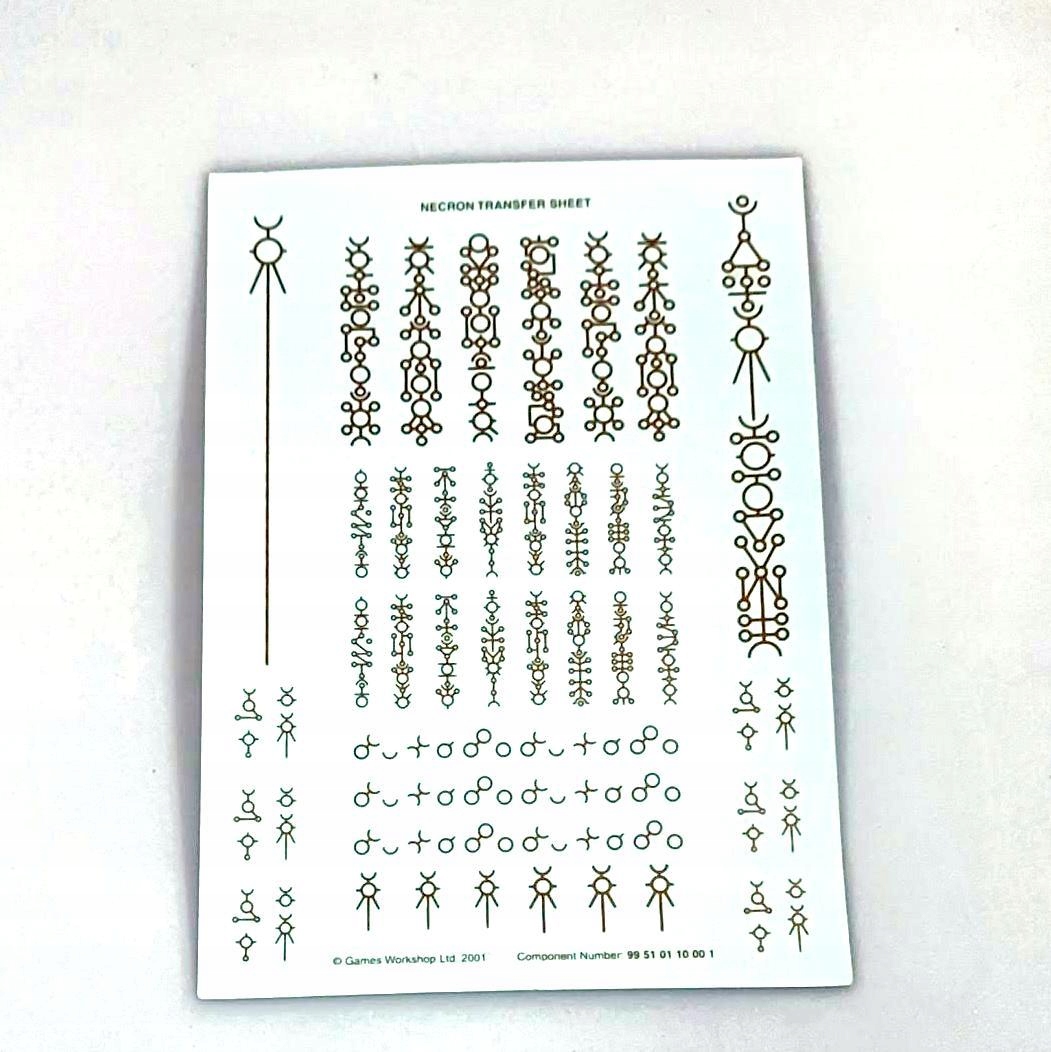 NECRON TRANSFER SHEET
© Games Workshop Ltd 2001 Component Number 99 51 01 10 00 1